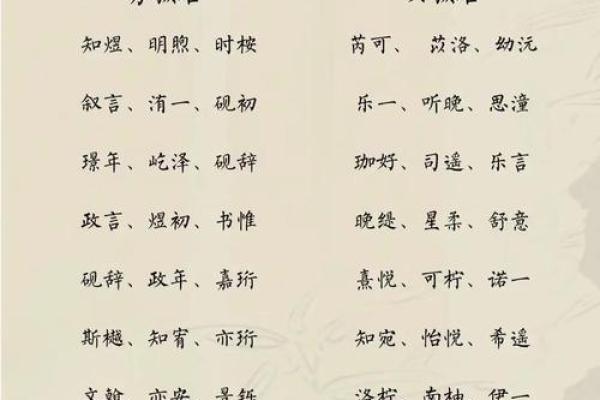 知煜、明煦、时桉
芮可、苡洛、幼沅
叙言、洧一、砚初
乐一、听晚、思潼
璟年、屹泽、砚辞
珈好、司遥、乐言
政言、煜初、书惟
晚缇、星柔、舒意
砚辞、政年、嘉珩
熹悦、可柠、诺一
斯樾、知宥、亦珩
知宛、怡悦、希遥
文翰、亦安、景铄
洛柠、南柚、伊一